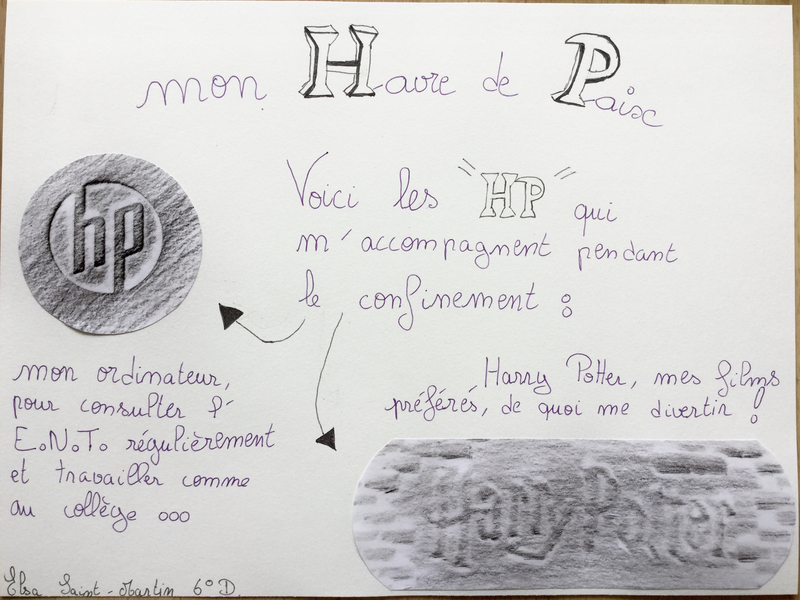 mon Havre de Paix
hp
Voici les "HP" qui
m'accompagnent pendant
le confinement :
mon ordinateur,
pour consulter l'
E.N.T. régulièrement
et travailler comme
au collège ...
Harry Potter, mes films
préférés, de quoi me divertir !
Harry Potter
Elsa Saint-Martin 6°D.